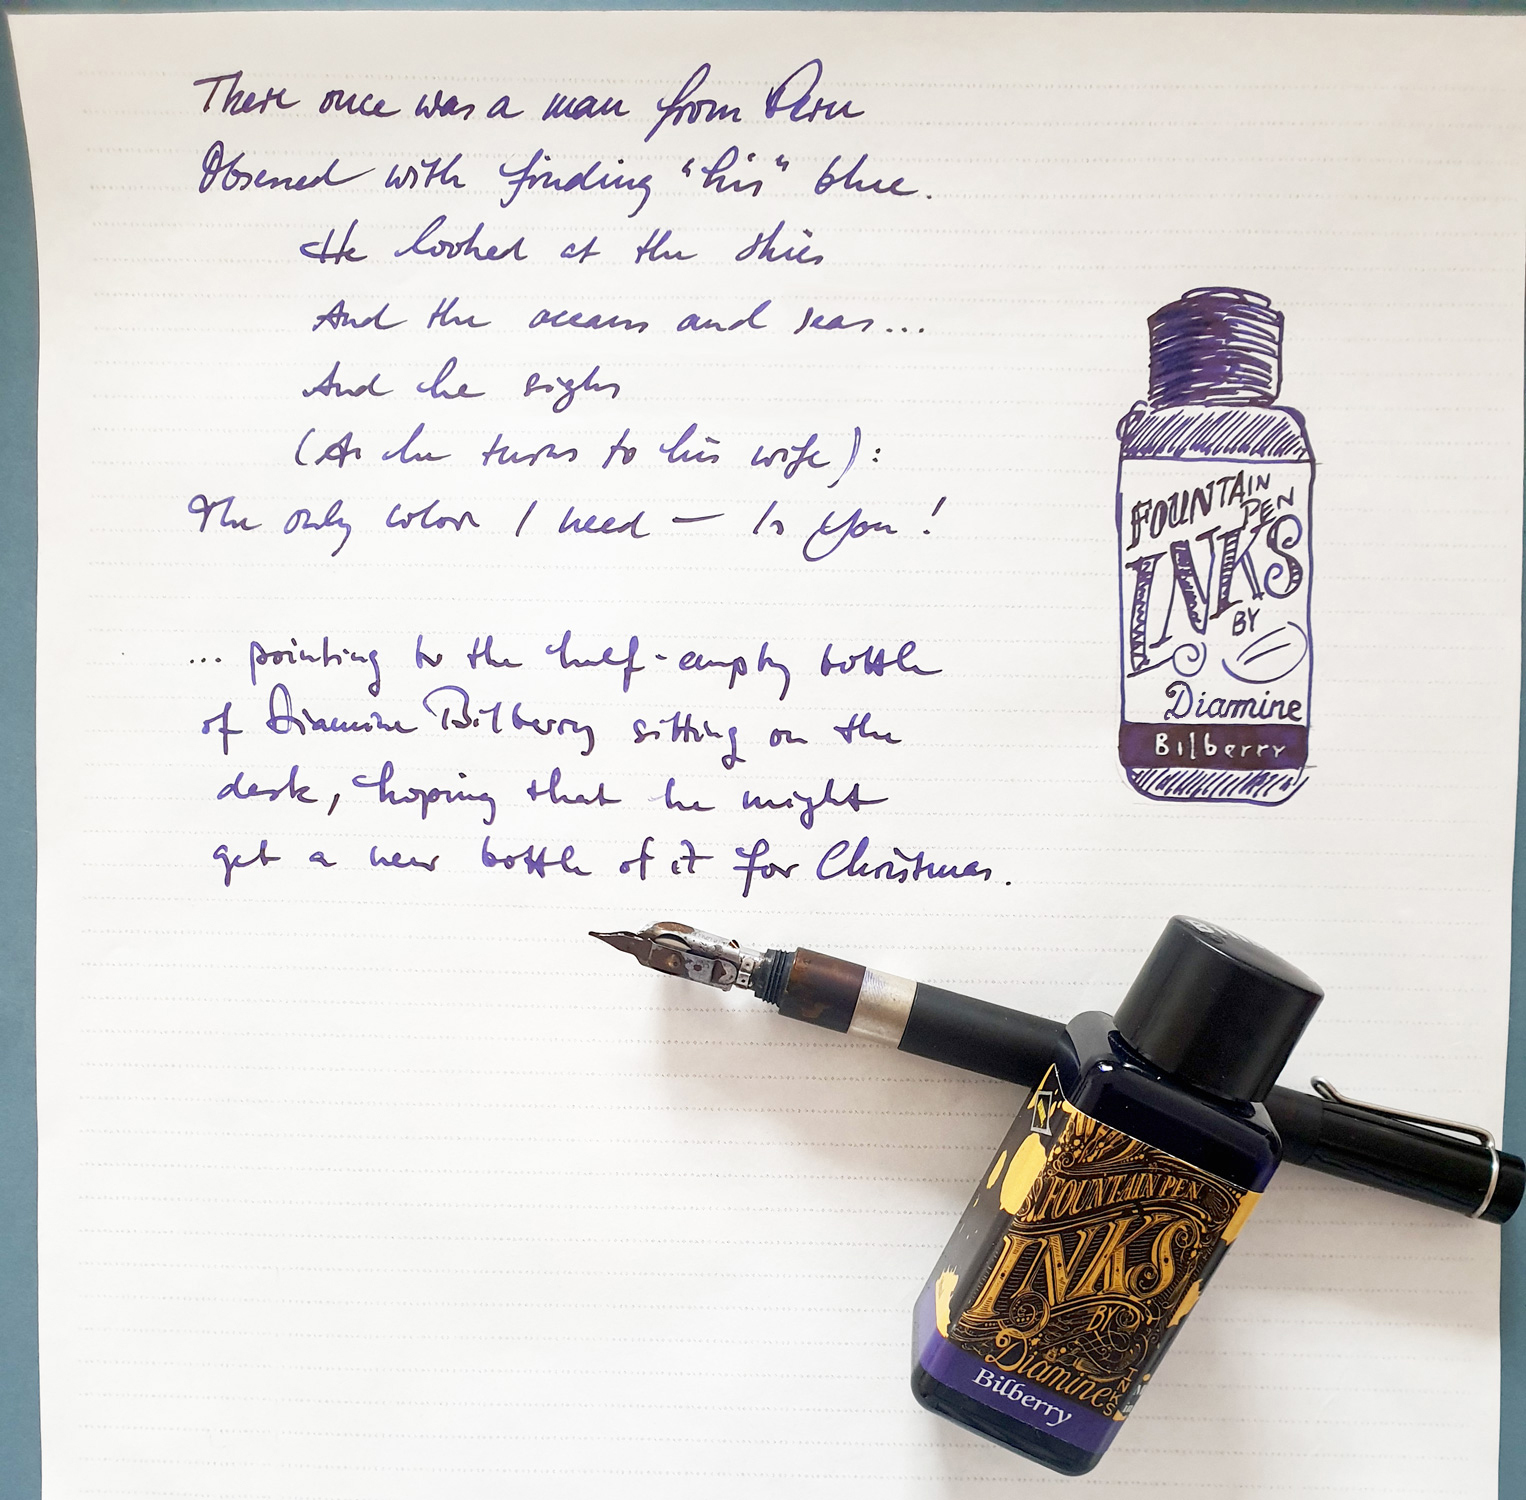 There once was a man from Peru
Obsessed with finding "his" blue.
He looked at the skies
And the oceans and seas...
And he sighs
(As he turns to his wife):
The only color I need — Is you!
... pointing to the half-empty bottle
of Diamine Bilberry sitting on the
desk, hoping that he might
get a new bottle of it for Christmas.
FOUNTAIN
PEN
INKS
BY
Diamine
Bilberry
FOUNTAIN PEN
INKS
BY
Diamine
INKS
Bilberry